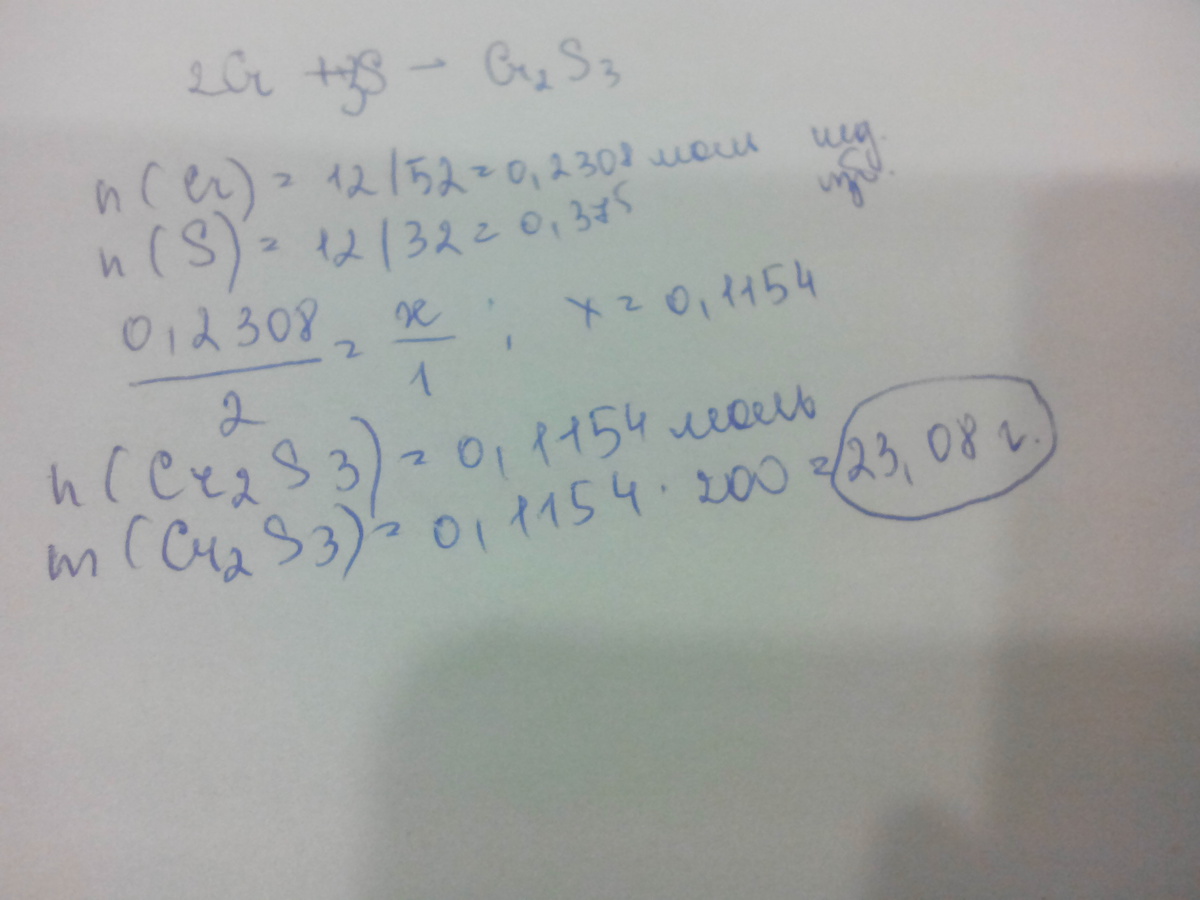 2Cr + 3S → Cr₂S₃
n(Cr) = 12/52 = 0,2308 моль нед.
n(S) = 12/32 = 0,375 изб.
0,2308/2 = x/1 ; x = 0,1154
n(Cr₂S₃) = 0,1154 моль
m(Cr₂S₃) = 0,1154 · 200 = 23,08 г.